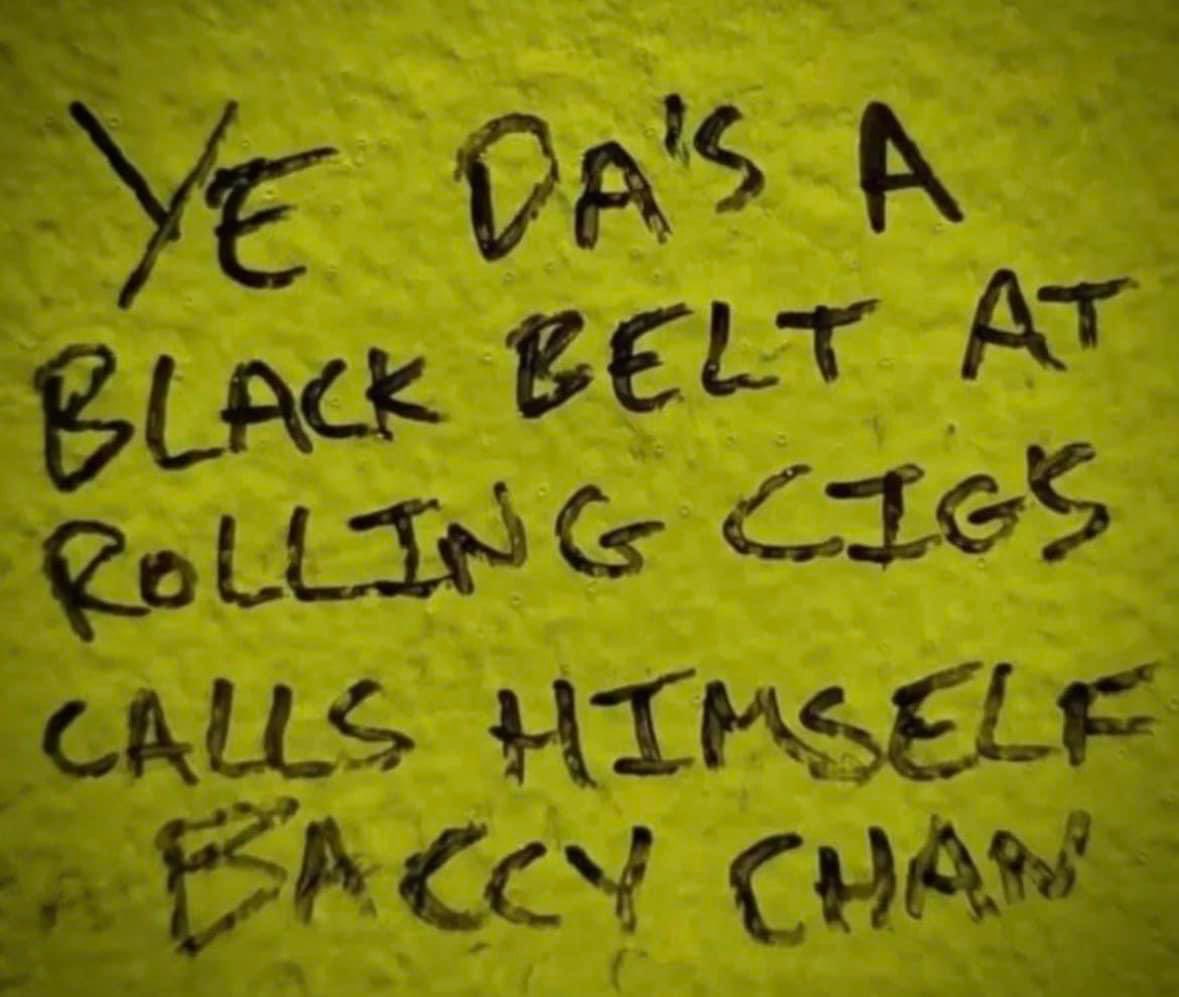 YE DA'S A
BLACK BELT AT
ROLLING CIG'S
CALLS HIMSELF
BACCY CHAN